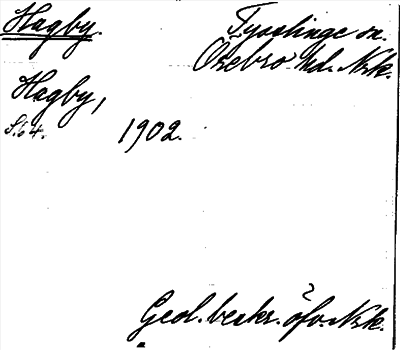 Hagby.
Tysslinge sn.
Örebro hd. Nrk.
Hagby,
S.64.
1902.
Geol. beskr. öfv. Nrk.